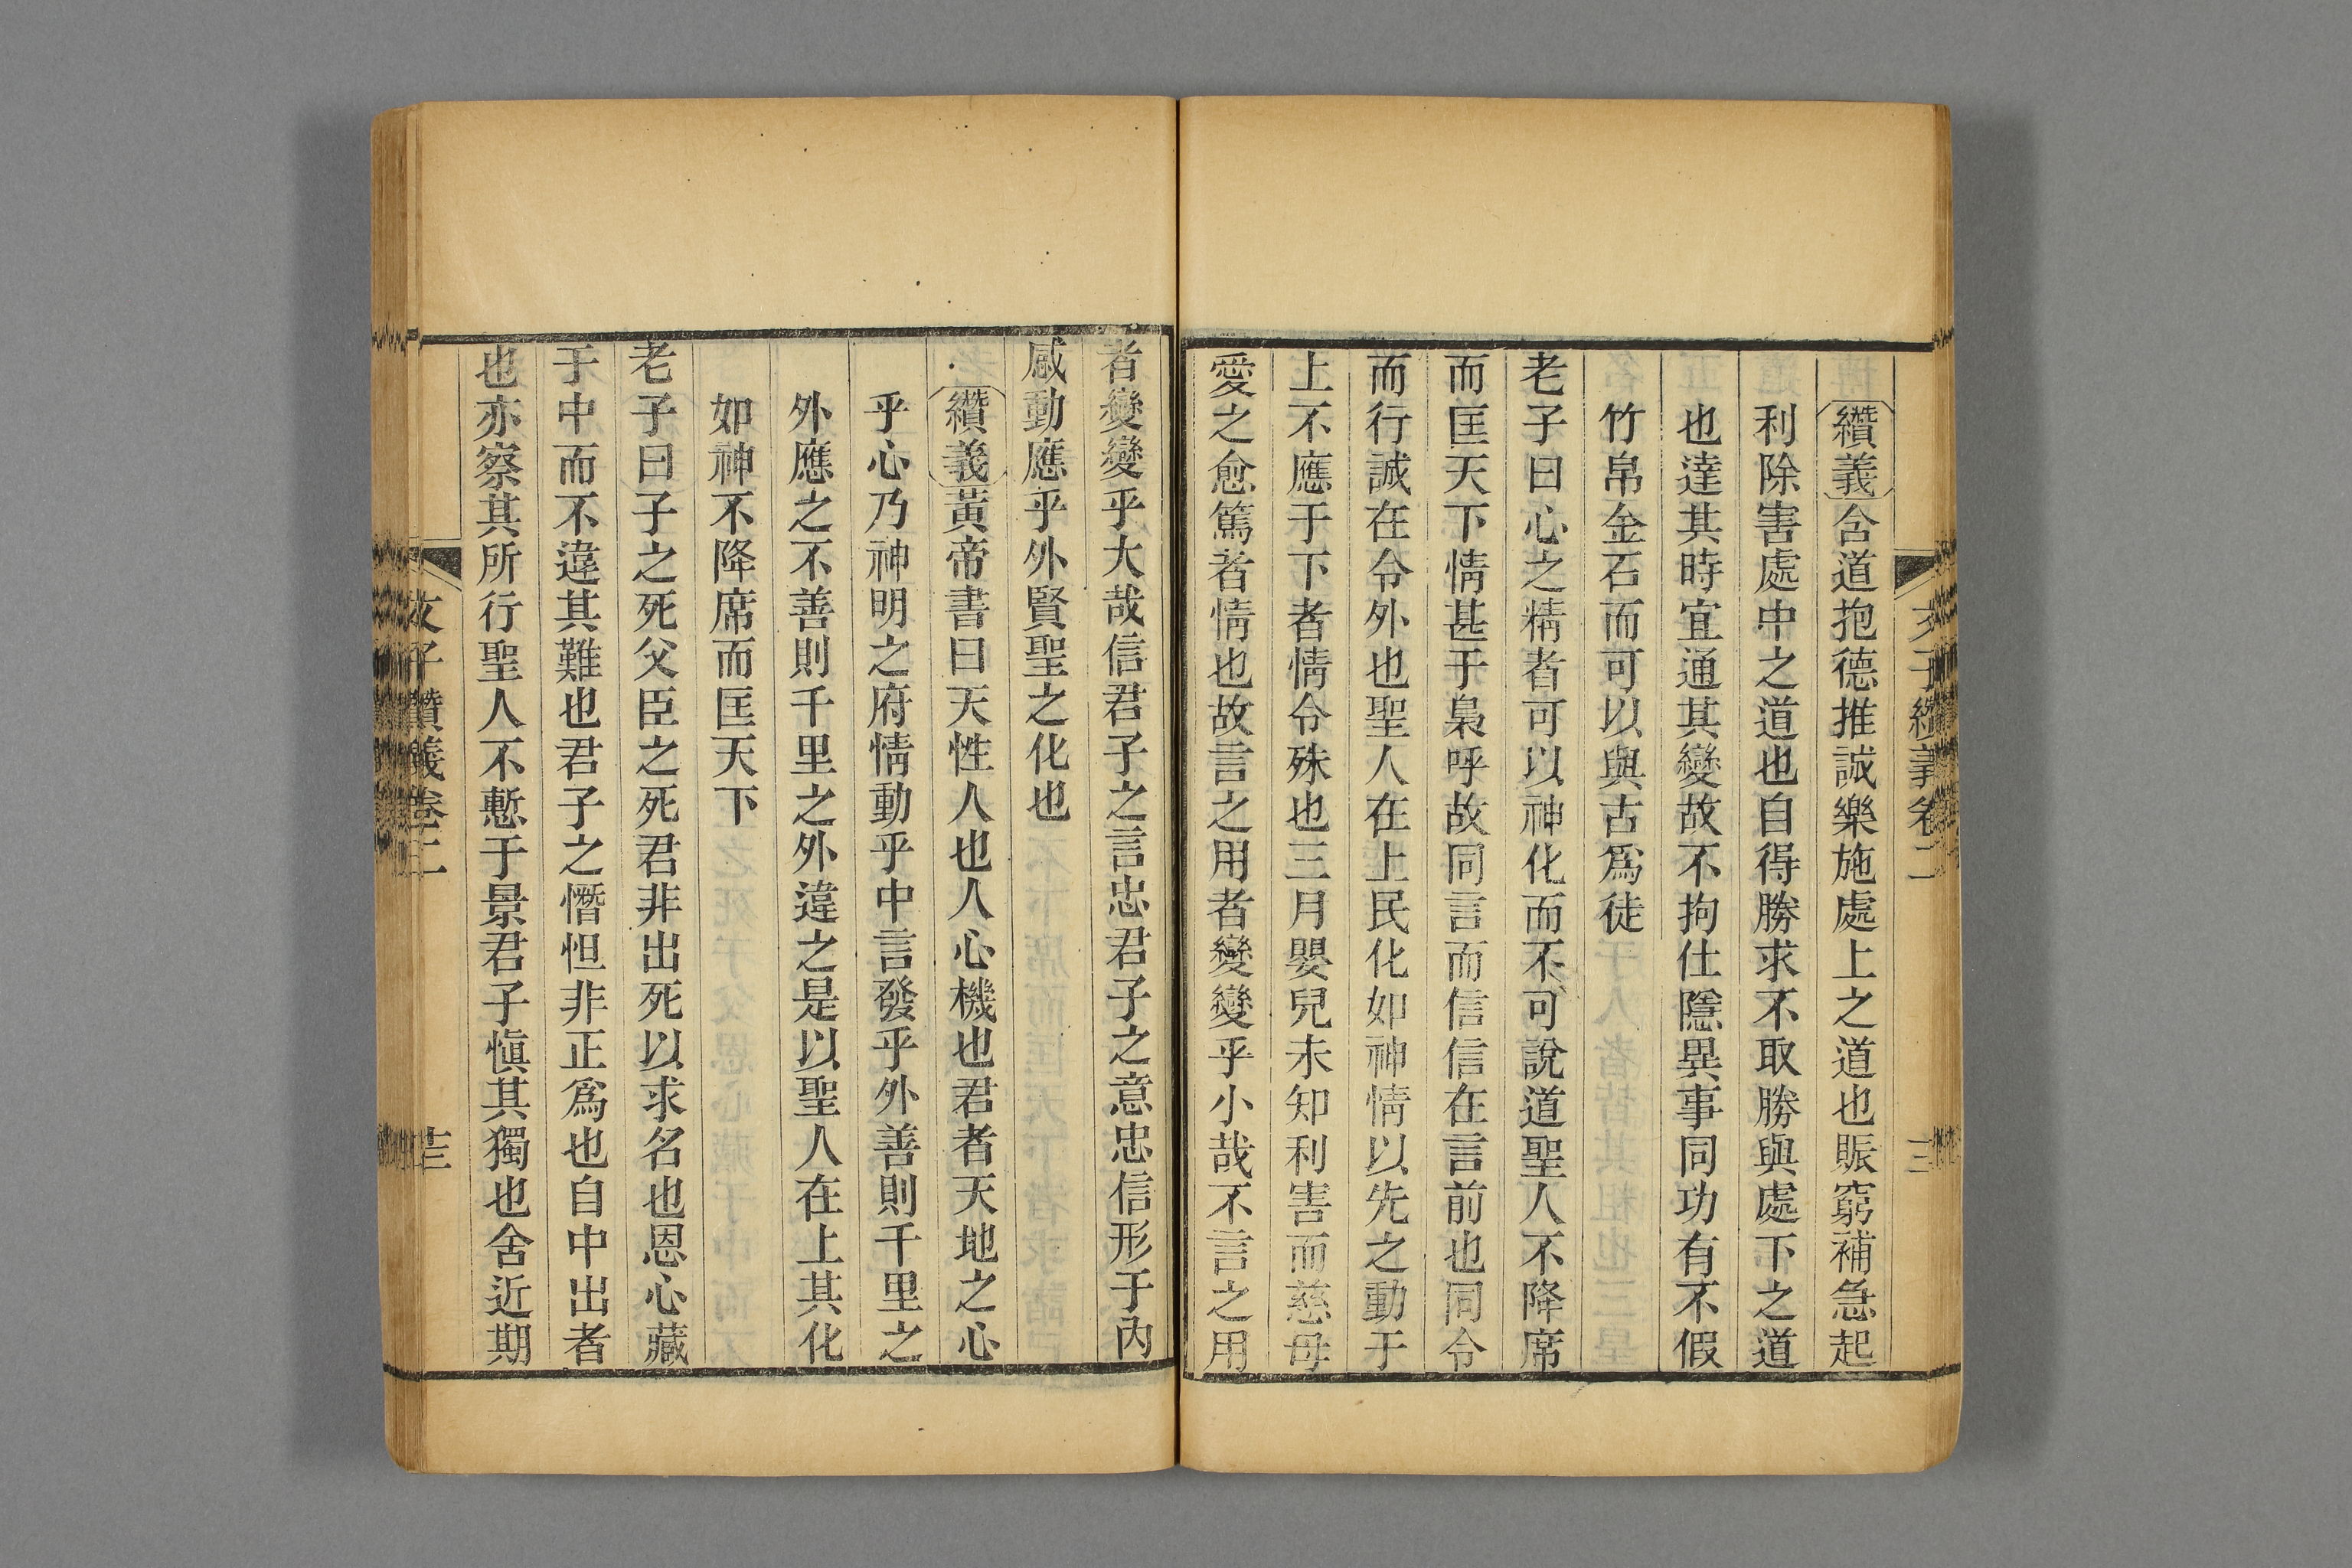 文子纘義卷二
纘義含道抱德推誠樂施處上之道也賑窮補急起
利除害處中之道也自得勝求不取勝與處下之道
也達其時宜通其變故不拘仕隱異事同功有不假
竹帛金石而可以與古爲徒
老子曰心之精者可以神化而不可說道聖人不降席
而匡天下情甚于梟呼故同言而信信在言前也同令
而行誠在令外也聖人在上民化如神情以先之動于
上不應于下者情令殊也三月嬰兒未知利害而慈母
愛之愈篤者情也故言之用者變變乎小哉不言之用
者變變乎大哉信君子之言忠君子之意忠信形于內
感動應乎外賢聖之化也
纘義黃帝書曰天性人也人心機也君者天地之心
乎心乃神明之府情動乎中言發乎外善則千里之
外應之不善則千里之外違之是以聖人在上其化
如神不降席而匡天下
老子曰子之死父臣之死君非出死以求名也恩心藏
于中而不違其難也君子之憯怛非正爲也自中出者
也亦察其所行聖人不慙于景君子愼其獨也舍近期
文子纘義卷二